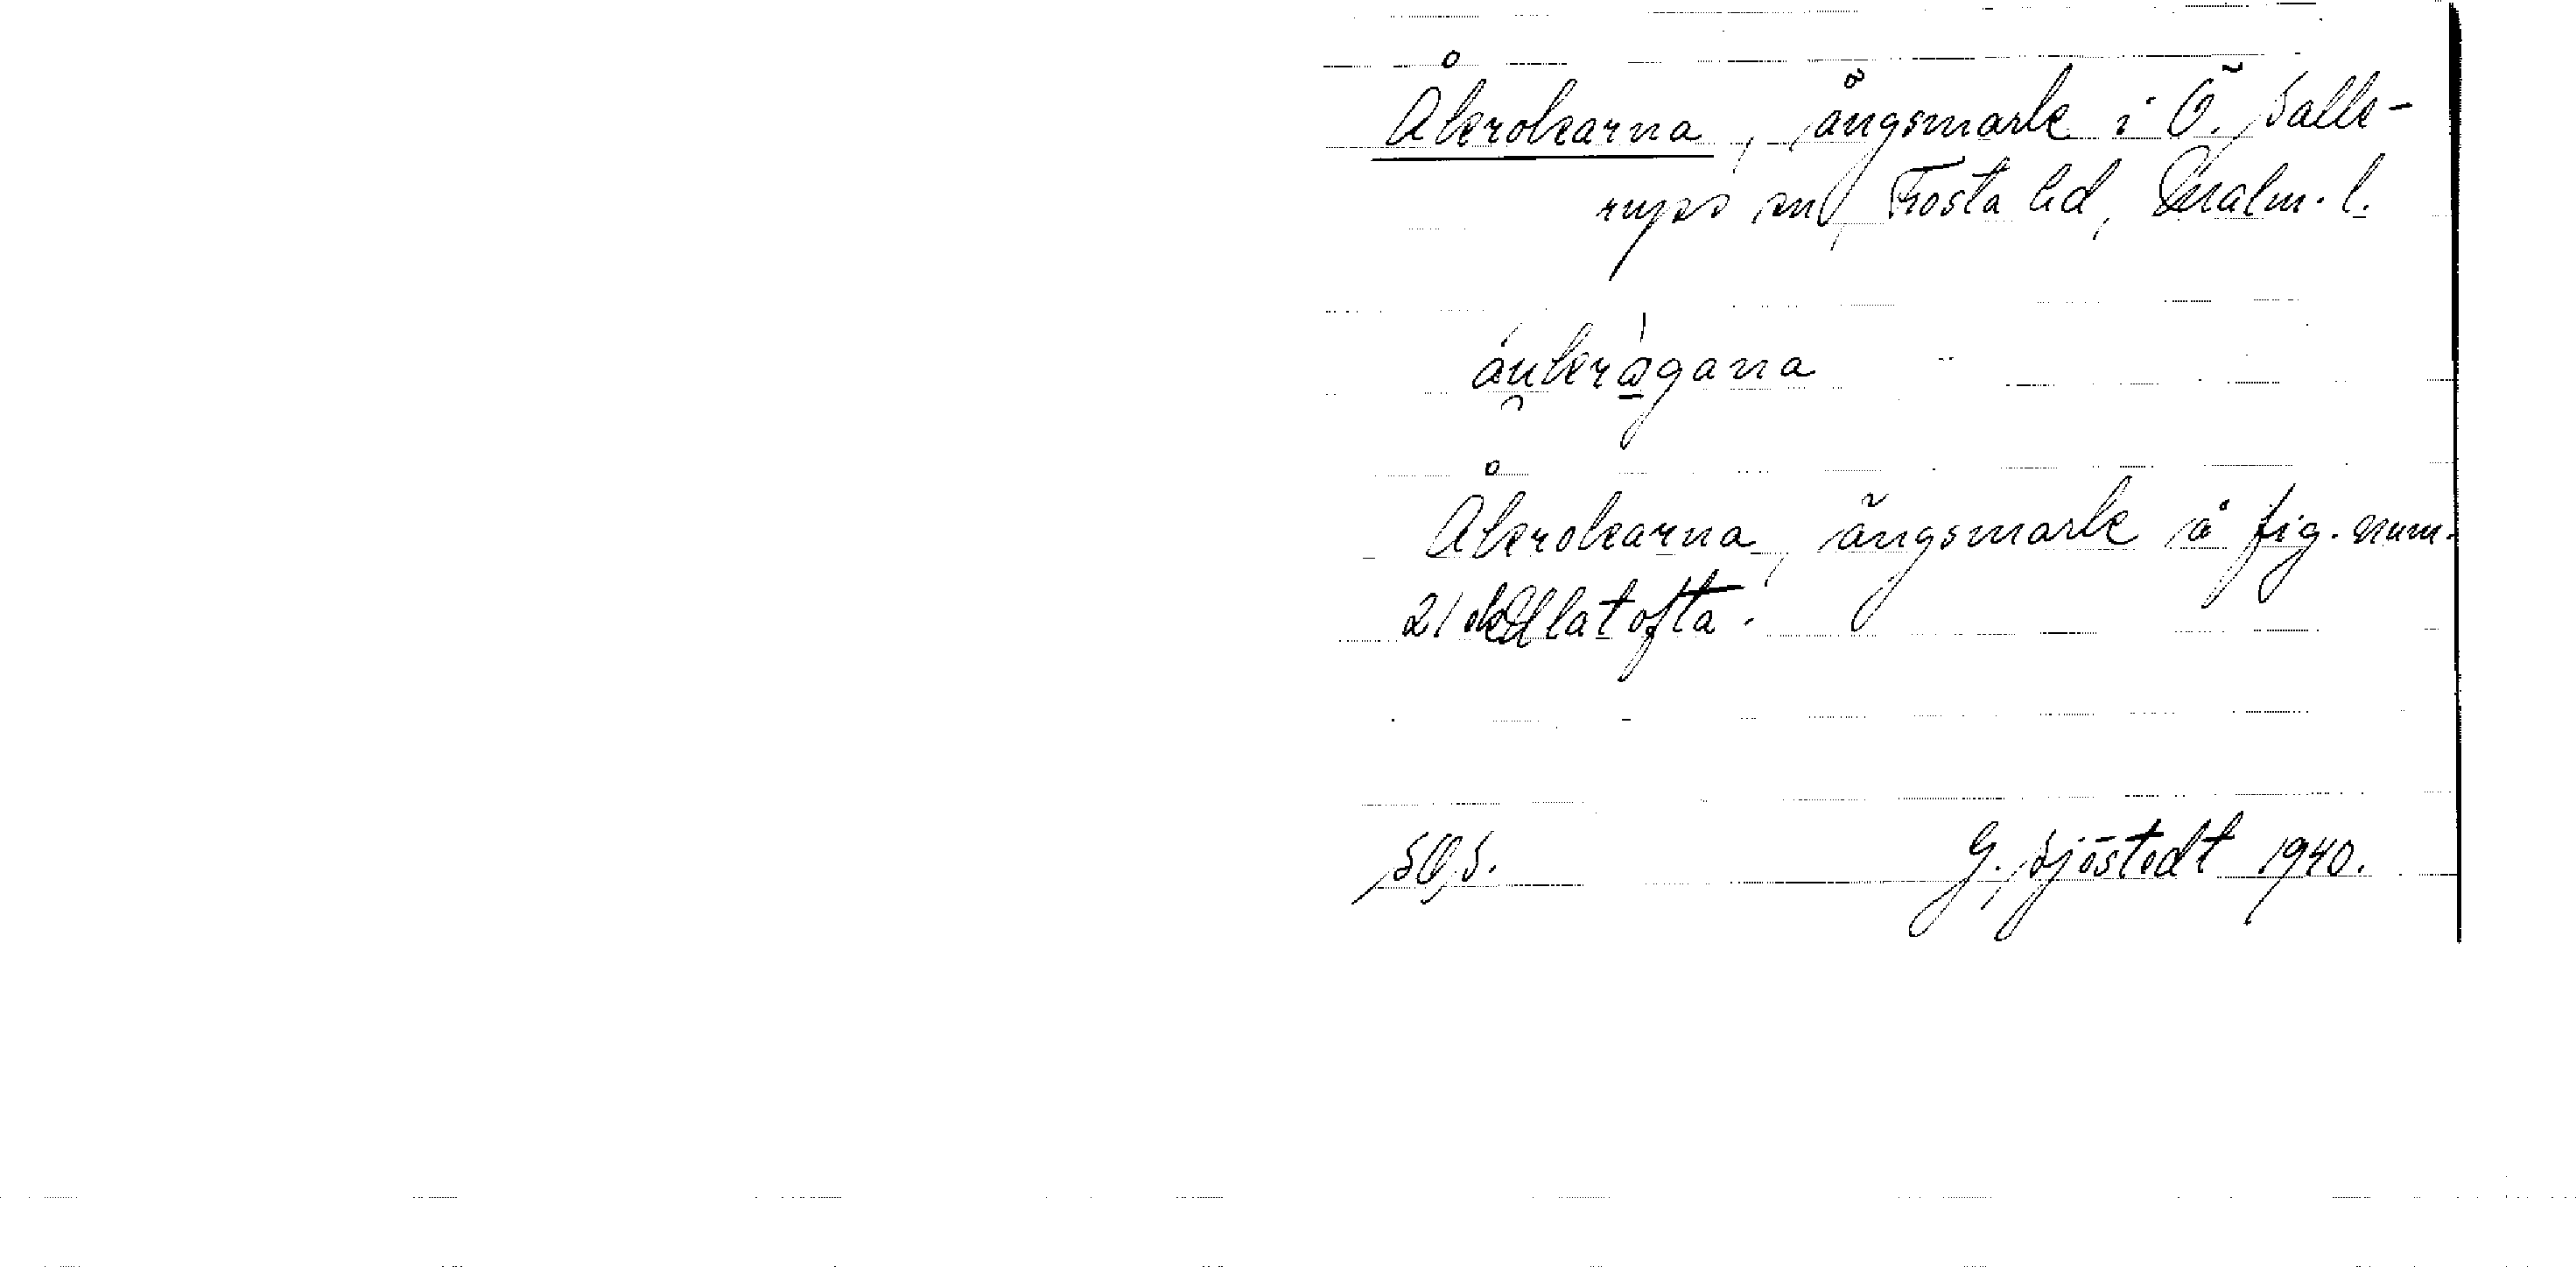 Åkrokarna, ängsmark i Ö. Salle-
rups sn, Frosta hd, Malm. l.
áu̯krågana
Åkrokarna, ängsmark å fig. num.
21 Ållatofta.
SOS. G. Sjöstedt 1940.